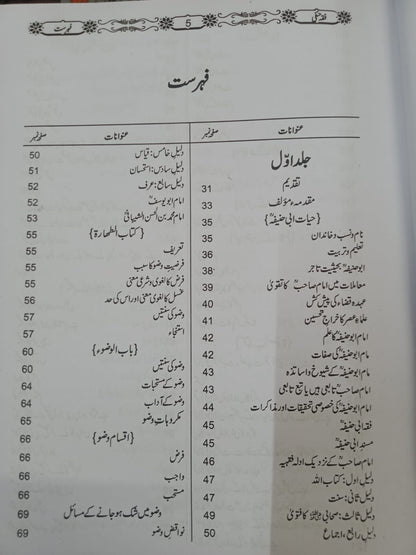 فقہ حنفی 5 فہرست
فہرست
عنوانات صفحہ نمبر
جلد اوّل
تقدیم 31
مقدمہ مؤلف 33
{حیات ابی حنیفہؒ} 35
نام و نسب و خاندان 35
تعلیم و تربیت 36
ابو حنیفہؒ بحیثیت تاجر 38
معاملات میں امام صاحبؒ کا تقویٰ 39
عہدہ قضاء کی پیش کش 40
علماءِ عصر کا خراج تحسین 41
امام ابو حنیفہؒ کا علم 42
امام ابو حنیفہؒ کی صفات 42
امام ابو حنیفہؒ کے شیوخ و اساتذہ 43
امام صاحبؒ تابعی ہیں یا تبع تابعی 43
امام ابو حنیفہؒ کی خصوصی تحقیقات اور مذاکرات 44
فقہ ابی حنیفہؒ 45
مسند ابی حنیفہؒ 45
امام صاحبؒ کے نزدیک اولہ فقہیہ 46
دلیل اول: کتاب اللہ 47
دلیل ثانی: سنت 47
دلیل ثالث: صحابی کا فتویٰ 49
دلیل رابع: اجماع 50
عنوانات صفحہ نمبر
دلیل خامس: قیاس 50
دلیل سادس: استحسان 51
دلیل سابع: عرف 52
امام ابو یوسفؒ 52
امام محمد بن الحسن الشیبانیؒ 53
{کتاب الطھارۃ} 55
تعریف 55
فرضیتِ وضو کا سبب 55
فرض کا لغوی و شرعی معنی 55
غسل کا لغوی معنی اور اس کی حد 56
وضو کی سنتیں 57
استنجاء 57
{باب الوضوء} 60
وضو کی سنتیں 60
وضو کے مستحبات 64
وضو کے آداب 64
مکروہاتِ وضو 65
{اقسام وضو} 66
فرض 66
واجب 66
مستحب 66
وضو میں شک ہو جانے کے مسائل 69
نواقض وضو 69